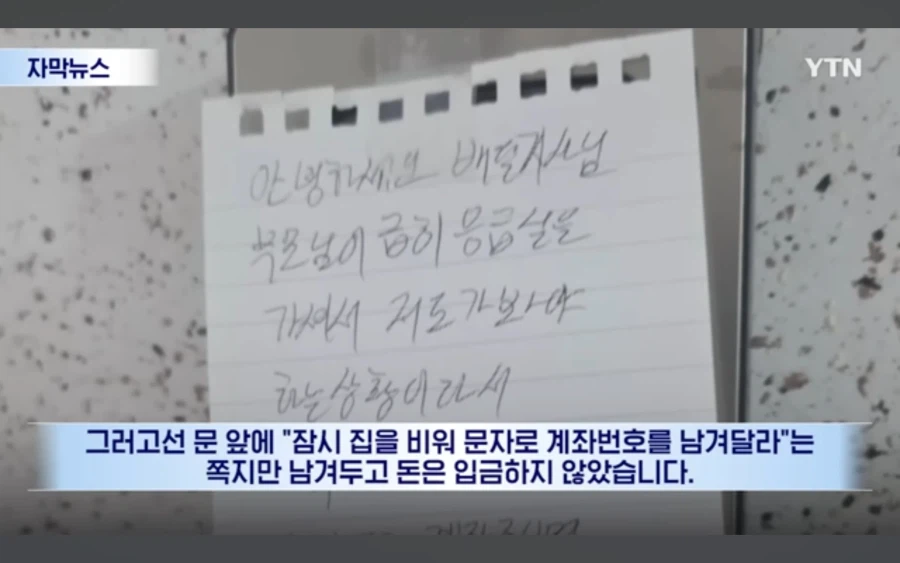 자막뉴스
YTN
안녕하세요 배달기사님
부모님이 급히 응급실을
가셔서 저도 가봐야
하는 상황이라서
그러고선 문 앞에 "잠시 집을 비워 문자로 계좌번호를 남겨달라"는
쪽지만 남겨두고 돈은 입금하지 않았습니다.